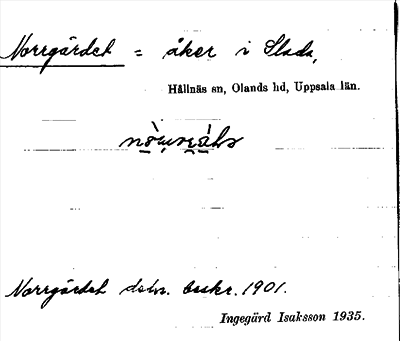 Norrgärdet = åker i Slada,
Hållnäs sn, Olands hd, Uppsala län.
Norrgärdet dombeskr. 1901.
Ingegärd Isaksson 1935.